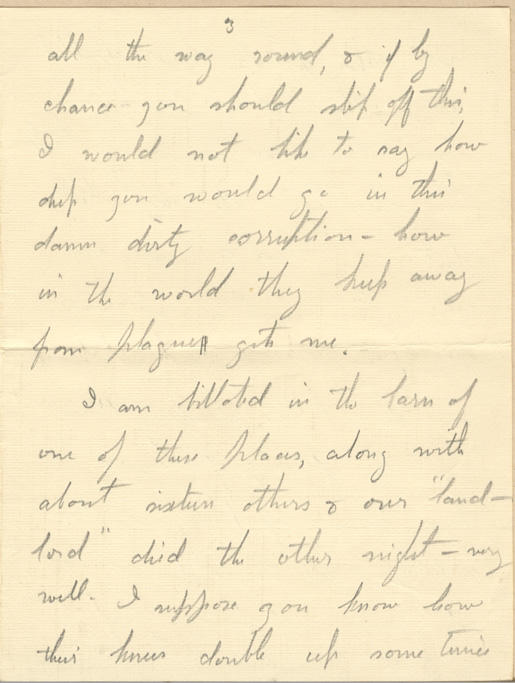 3
all the way round, & if by
chance you should slip off this,
I would not like to say how
deep you would go in this
damn dirty corruption - how
in the world they keep away
from plagues gets me.
I am billeted in the barn of
one of these places, along with
about sixteen others & our "land-
lord" died the other night - very
well. I suppose you know how
their knees double up sometimes